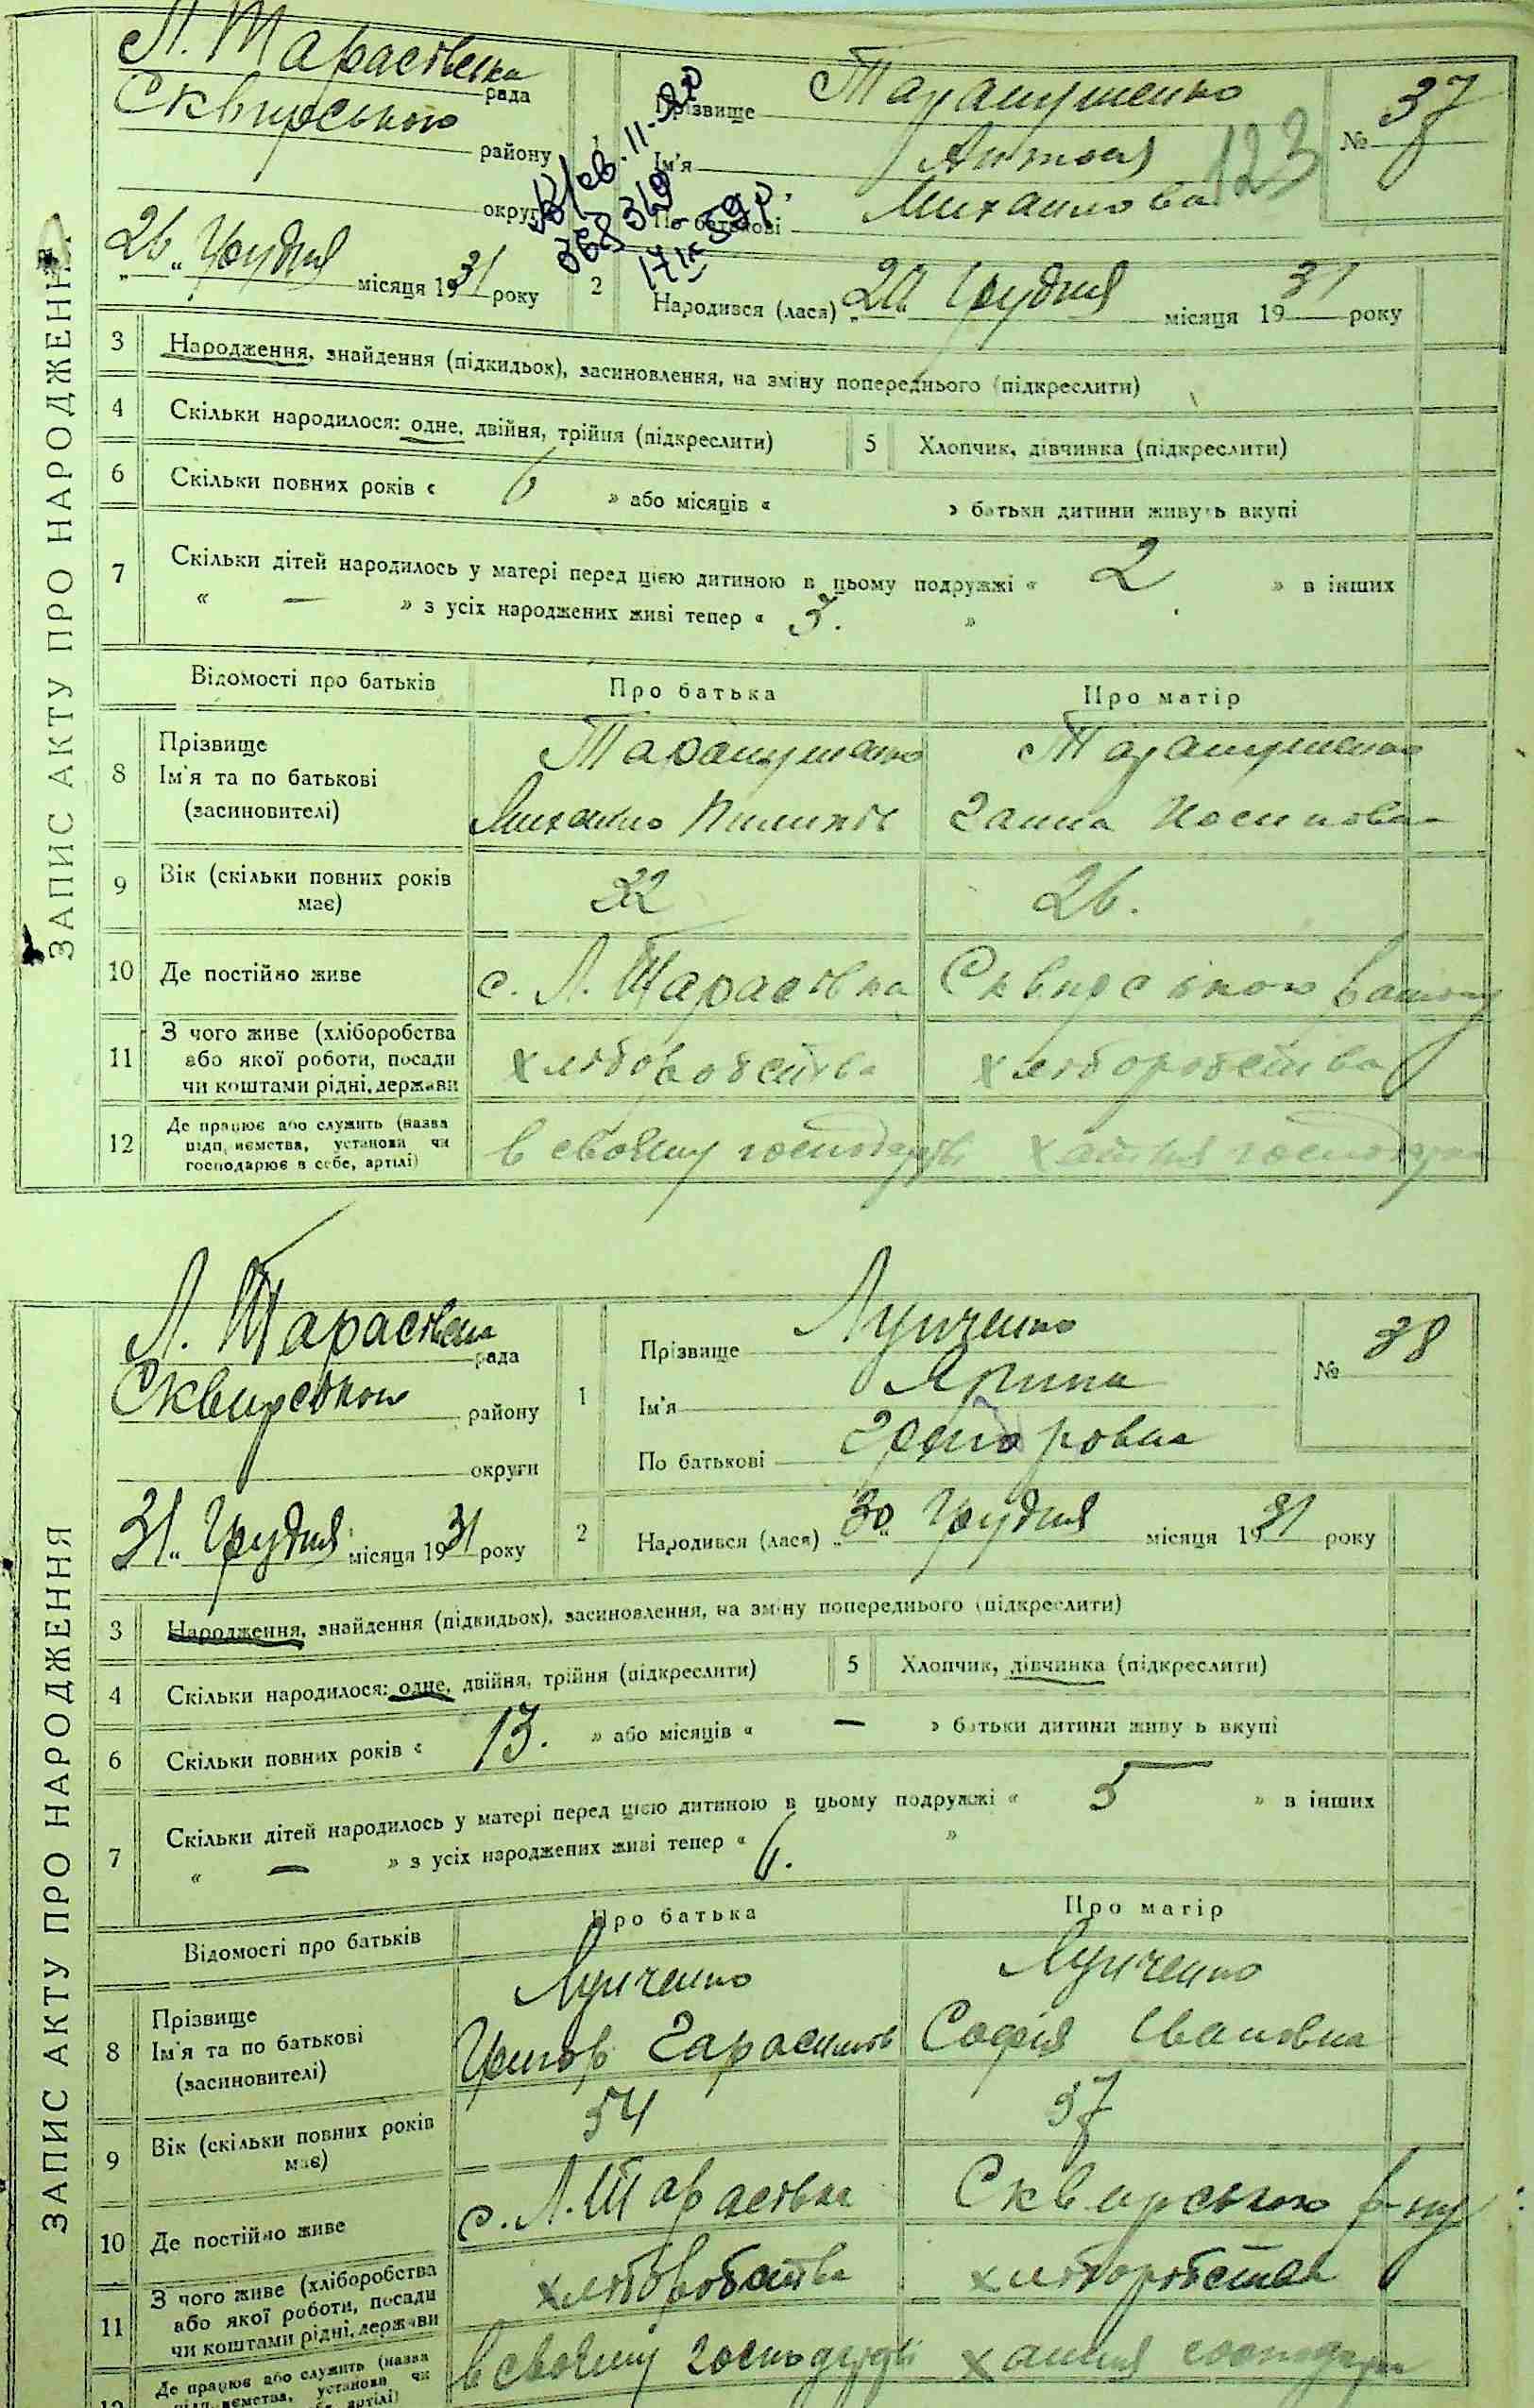 ЗАПИС АКТУ ПРО НАРОДЖЕННЯ
Л. Тарасівська рада
Сквирського району
округи
„26“ Грудня місяця 1931 року
Прізвище Тарапушенко
Ім'я
По батькові Михайлова
123
№ 37
368349
2 Народився (лася) „20“ Грудня місяця 1931 року
3 Народження, знайдення (підкидьок), засиновлення, на зміну попереднього (підкреслити)
4 Скільки народилося: одне, двійня, трійня (підкреслити) 5 Хлопчик, дівчинка (підкреслити)
6 Скільки повних років « 6 » або місяців « » батьки дитини живуть вкупі
7 Скільки дітей народилось у матері перед цією дитиною в цьому подружжі « 2 » в інших
« — » з усіх народжених живі тепер « 3. »
Відомості про батьків Про батька Про матір
8 Прізвище Тарапушенко Тарапушенко
Ім'я та по батькові (засиновителі) Михайло Пилипів Ганна Йосипова
9 Вік (скільки повних років має) 32 26.
10 Де постійно живе с. Л. Тарасівка Сквирського району
11 З чого живе (хліборобства або якої роботи, посади чи коштами рідні, держави хліборобства хліборобства
12 Де працює або служить (назва підприємства, установи чи господарює в себе, артілі) в своєму господарстві хатня господарка
ЗАПИС АКТУ ПРО НАРОДЖЕННЯ
Л. Тарасівська рада
Сквирського району
округи
„31“ Грудня місяця 1931 року
1 Прізвище Лупченко
Ім'я Ярина
По батькові Григоровна
№ 38
2 Народився (лася) „30“ Грудня місяця 1931 року
3 Народження, знайдення (підкидьок), засиновлення, на зміну попереднього (підкреслити)
4 Скільки народилося: одне, двійня, трійня (підкреслити) 5 Хлопчик, дівчинка (підкреслити)
6 Скільки повних років « 13. » або місяців « — » батьки дитини живуть вкупі
7 Скільки дітей народилось у матері перед цією дитиною в цьому подружжі « 5 » в інших
« — » з усіх народжених живі тепер « 6. »
Відомості про батьків Про батька Про матір
8 Прізвище Лупченко Лупченко
Ім'я та по батькові (засиновителі) Григор Гарасимів Софія Івановна
9 Вік (скільки повних років має) 54 37
10 Де постійно живе с. Л. Тарасівка Сквирського р-ну
11 З чого живе (хліборобства або якої роботи, посади чи коштами рідні, держави хліборобства хліборобства
Де працює або служить (назва підприємства, установи чи артілі) в своєму господарстві хатня господарка